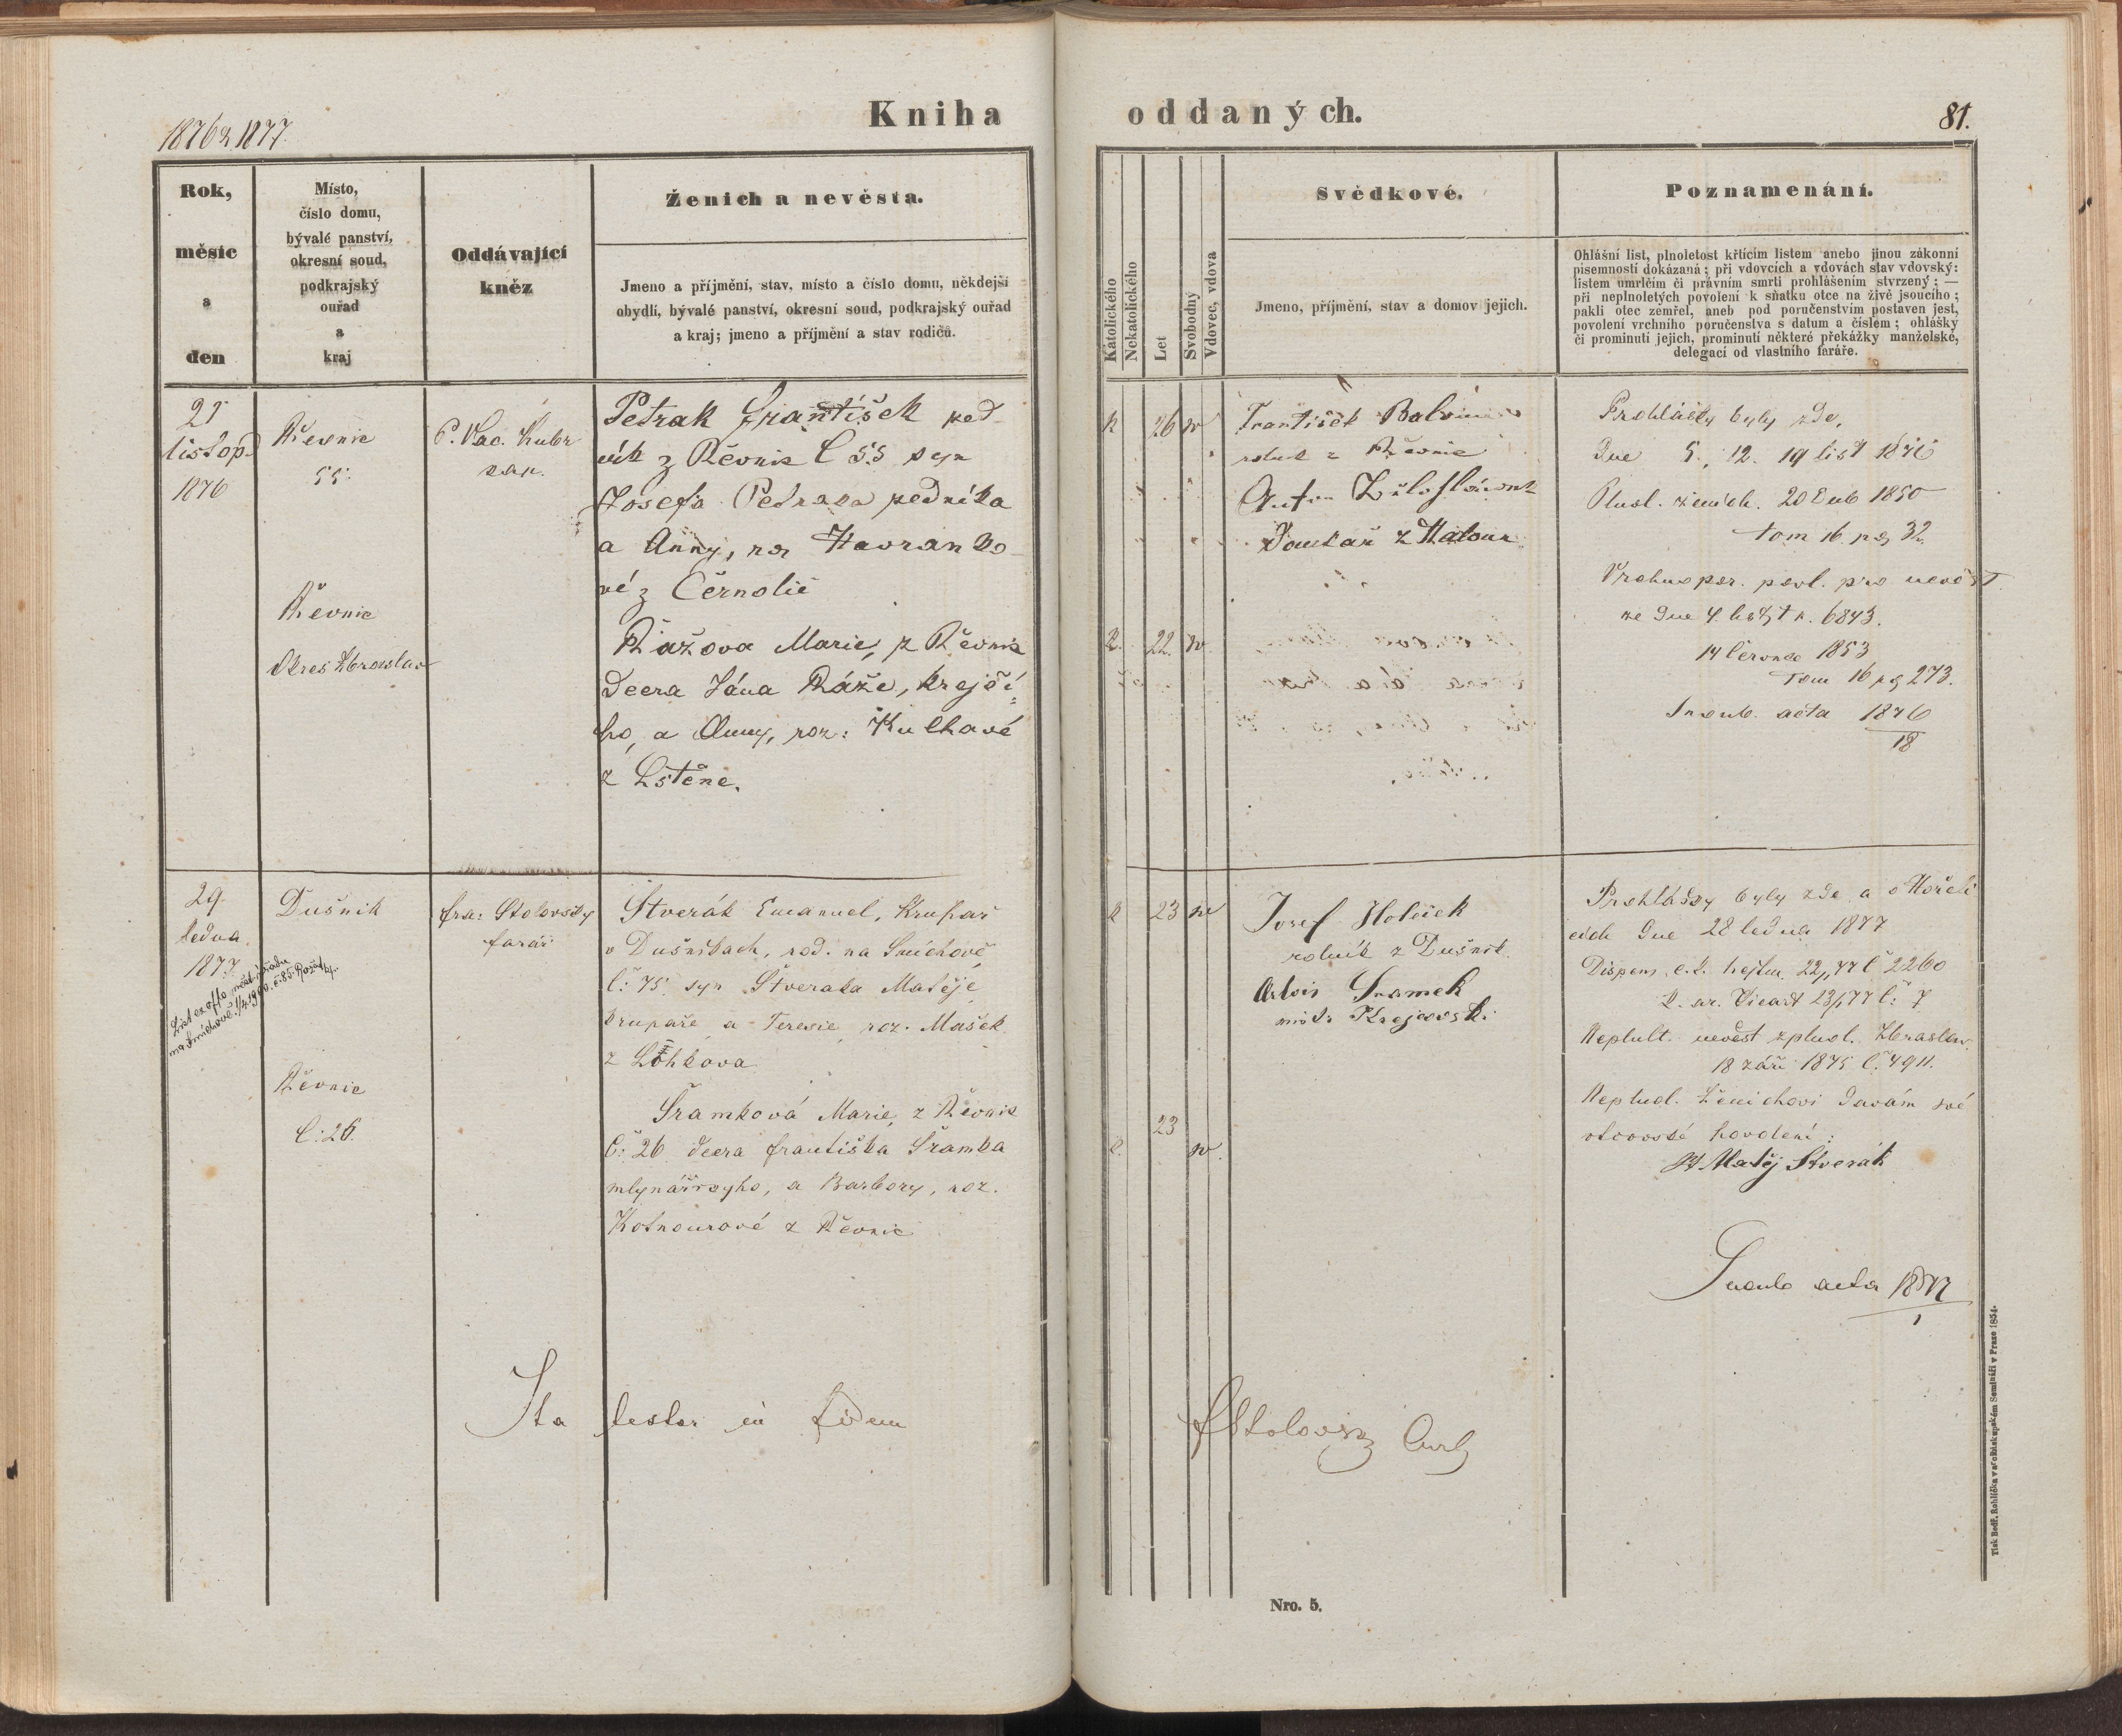 1876 & 1877.
Kniha oddaných.
81.
Rok,
měsíc
a
den
Místo,
číslo domu,
bývalé panství,
okresní soud,
podkrajský
ouřad
a
kraj
Oddávající
kněz
Ženich a nevěsta.
Jmeno a příjmění, stav, místo a číslo domu, někdejší
obydlí, bývalé panství, okresní soud, podkrajský ouřad
a kraj; jmeno a příjmění a stav rodičů.
Katolického
Nekatolického
Let
Svobodný
Vdovec, vdova
Svědkové.
Jmeno, příjmění, stav a domov jejich.
Poznamenání.
Ohlášní list, plnoletost křticím listem anebo jinou zákonní
písemností dokázaná; při vdovcích a vdovách stav vdovský:
listem úmrtčím či právním smrti prohlášením stvrzený; —
při neplnoletých povolení k sňatku otce na živě jsoucího;
pakli otec zemřel, aneb pod poručenstvím postaven jest,
povolení vrchního poručenstva s datum a číslem; ohlášky
či prominutí jejich, prominutí některé překážky manželské,
delegací od vlastního faráře.
21
listop.
1876
Řevnic
55.
Řevnic
Okres Zbraslav
P. Vac. Kubr
kap.
Petrak František ped
ník z Řevnic Č 55 syn
Josefa Petraka pedníka
a Anny, roz Havranko
vé z Černolic
Řažova Marie, z Řevnic
dcera Jána Ráže, krejčí
ho, a Anny, roz: Kulhavé
z Lštěne.
K 26
K. 22.
František
rolník z Řevnic
z
Prohlášky byly zde,
dne 5., 12. 19 list 1876
Plnol. ženich. 20 Dub 1850
tom 16. pg 32.
povl. pro nevěst
ze dne 4 list. 6843.
14 Července 1853
Tom 16 pg 273.
acta 1876
18
29.
ledna
1877
Dušnik
Řevnic
č: 26.
fra: Stolovský
farář
Štverák Emanuel, Krupař
v Dušnikach, rod. na Smíchově
č: 75 syn Štveraka Matěje
krupaře a Teresie roz. Mašek
z Lohkova
Šramková Marie, z Řevnic
Č: 26 dcera františka Šramka
mlynářského, a Barbory, roz.
Kotnourové z Řevnic
K 23
K. 23
Josef Holeček
rolník z Dušnik
Alois Šramek
Prohlášky byly zde a v Hořeli
cích dne 28 ledna 1877
Dispens. c.k. hejtm. 22/1 77 č 2260
23/1 77 č: 7
nevěst zplnol. Zbraslav
18 září 1875 č. 4911.
Neplnol. ženichovi davám své
otcovské povolení:
Matěj Štverák
acta 1877
1
Ita testor in fidem
FStolovský
Nro. 5.
Tisk Bedř. Rohlíčka v arcibiskupském Semináři v Praze 1854.